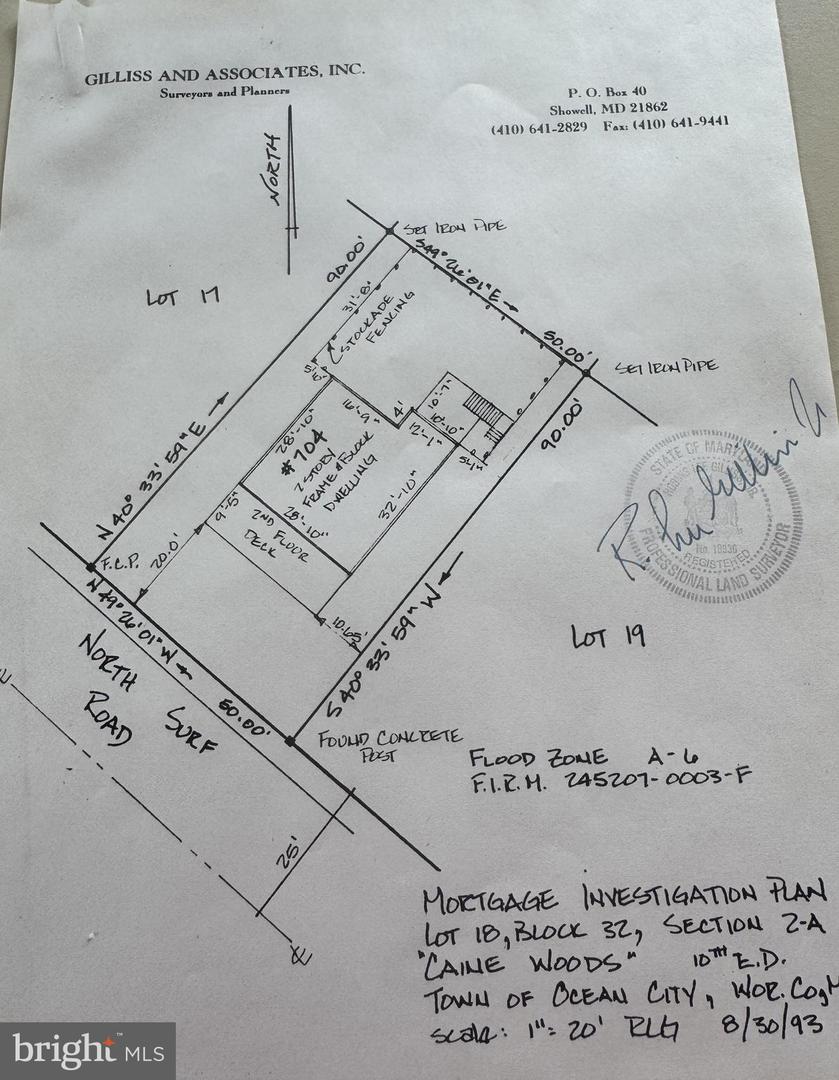 GILLISS AND ASSOCIATES, INC.
Surveyors and Planners
P. O. Box 40
Showell, MD 21862
(410) 641-2829 Fax: (410) 641-9441
NORTH
LOT 17
SET IRON PIPE
90.00'
S49° 26' 01" E
31'-8"
STOCKADE
FENCING
50.00'
SET IRON PIPE
5'-10"
16'-9"
4'
10'-7"
10'-10"
12'-1"
90.00'
N 40° 33' 59" E
28'-10"
#704
2 STORY
FRAME & BLOCK
DWELLING
32'-10"
STATE OF MARYLAND
No. 10936
REGISTERED
PROFESSIONAL LAND SURVEYOR
9'-5"
28'-10"
2ND FLOOR
DECK
F.C.P.
20.0'
10.65'
S 40° 33' 59" W
LOT 19
N 49° 26' 01" W
50.00'
NORTH SURF
ROAD
FOUND CONCRETE
POST
FLOOD ZONE A-6
F.I.R.M. 245207-0003-F
25'
MORTGAGE INVESTIGATION PLAN
LOT 18, BLOCK 32, SECTION 2-A
"CAINE WOODS" 10TH E.D.
TOWN OF OCEAN CITY, WOR. CO, M
scale: 1"= 20' RLG 8/30/93
bright MLS